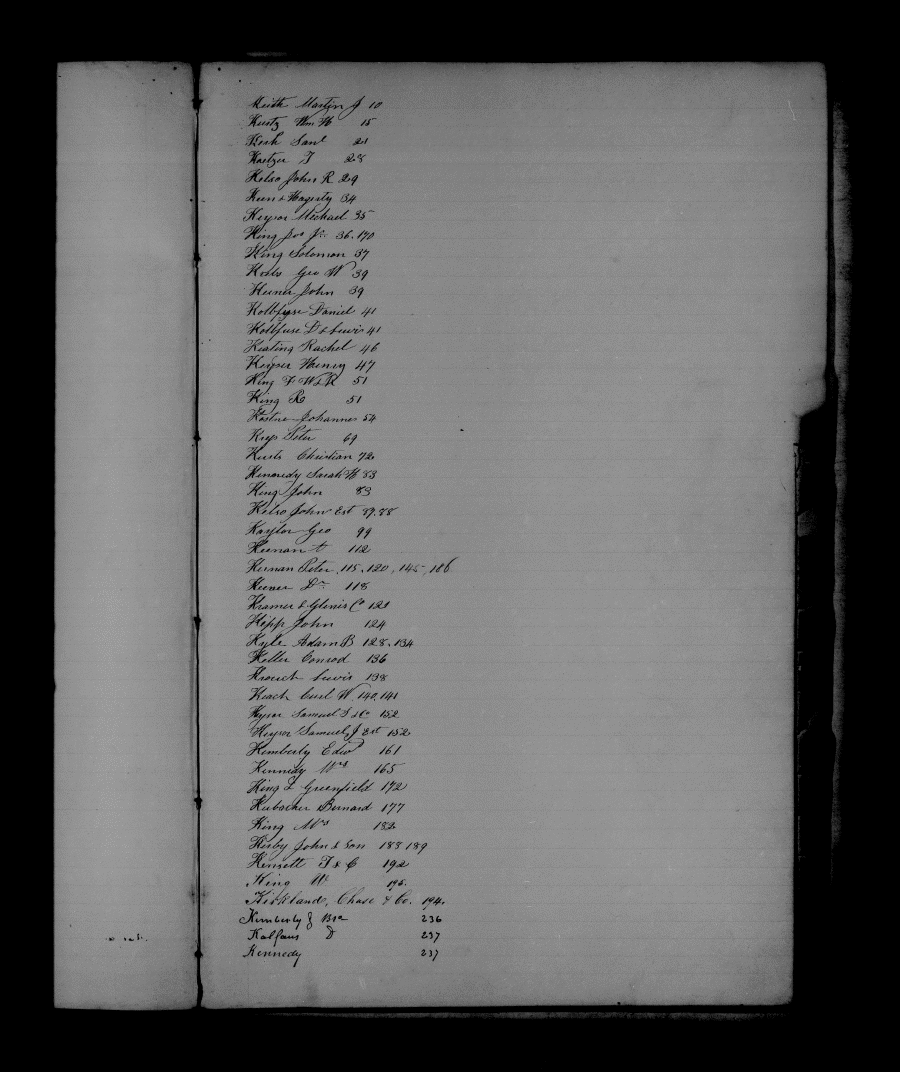 Keith Martin J 10
Kurtz Wm H 15
Kesh Saml 21
Kaetzer J 28
Kelso John R 29
Keen & Hagerty 34
Keyser Michael 35
King Jos Jr. 36. 170
King Solomon 37
Geo W 39
Keener John 39
Kolbfuse Daniel 41
Kolbfuse D & Lewis 41
Keating Rachel 46
Keyser Henry 47
King F W & R 51
King R 51
Johannes 54
Keys Peter 69
Christian 72
Kennedy Sarah H 83
King John 83
Kelso John Est 87. 88
Kaylor Geo 99
Keenan 112
Kernan Peter 115. 120, 145, 186
Keener Dr 118
Kramer & Co 121
Kipp John 124
Kyle Adam B 128. 134
Keller Conrod 136
Lewis 138
Keach W 140. 141
Keyser Samuel S & Co 152
Keyser Samuel J Est 152
Kemberly Edwd 161
Kennedy Mrs 165
King & Greenfield 172
Kubacher Bernard 177
King Mrs 182
Kirby John & Son 188 189
Kensett T & C 192
King W 195.
Kirkland, Chase & Co. 194.
Kemberly & Bro 236
Kalfaus D 237
Kennedy 237